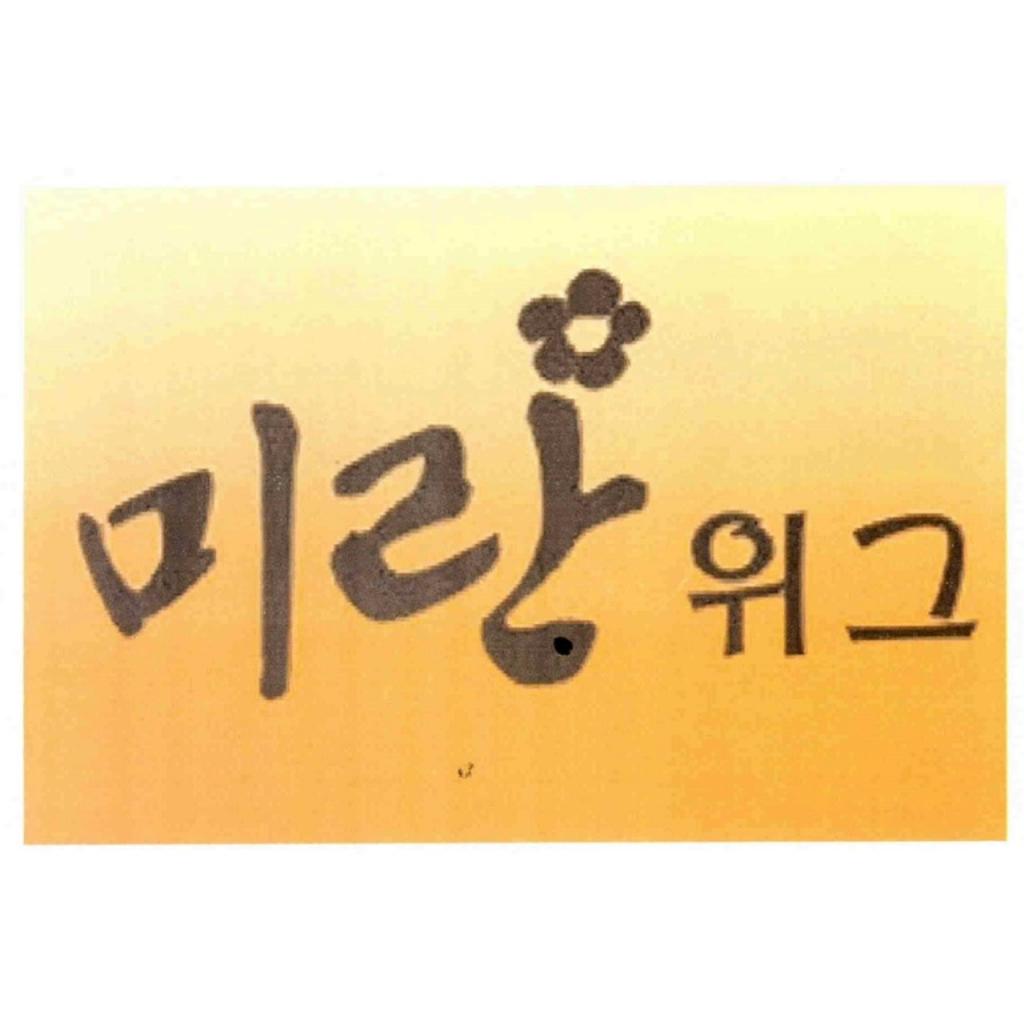 미랑 위그